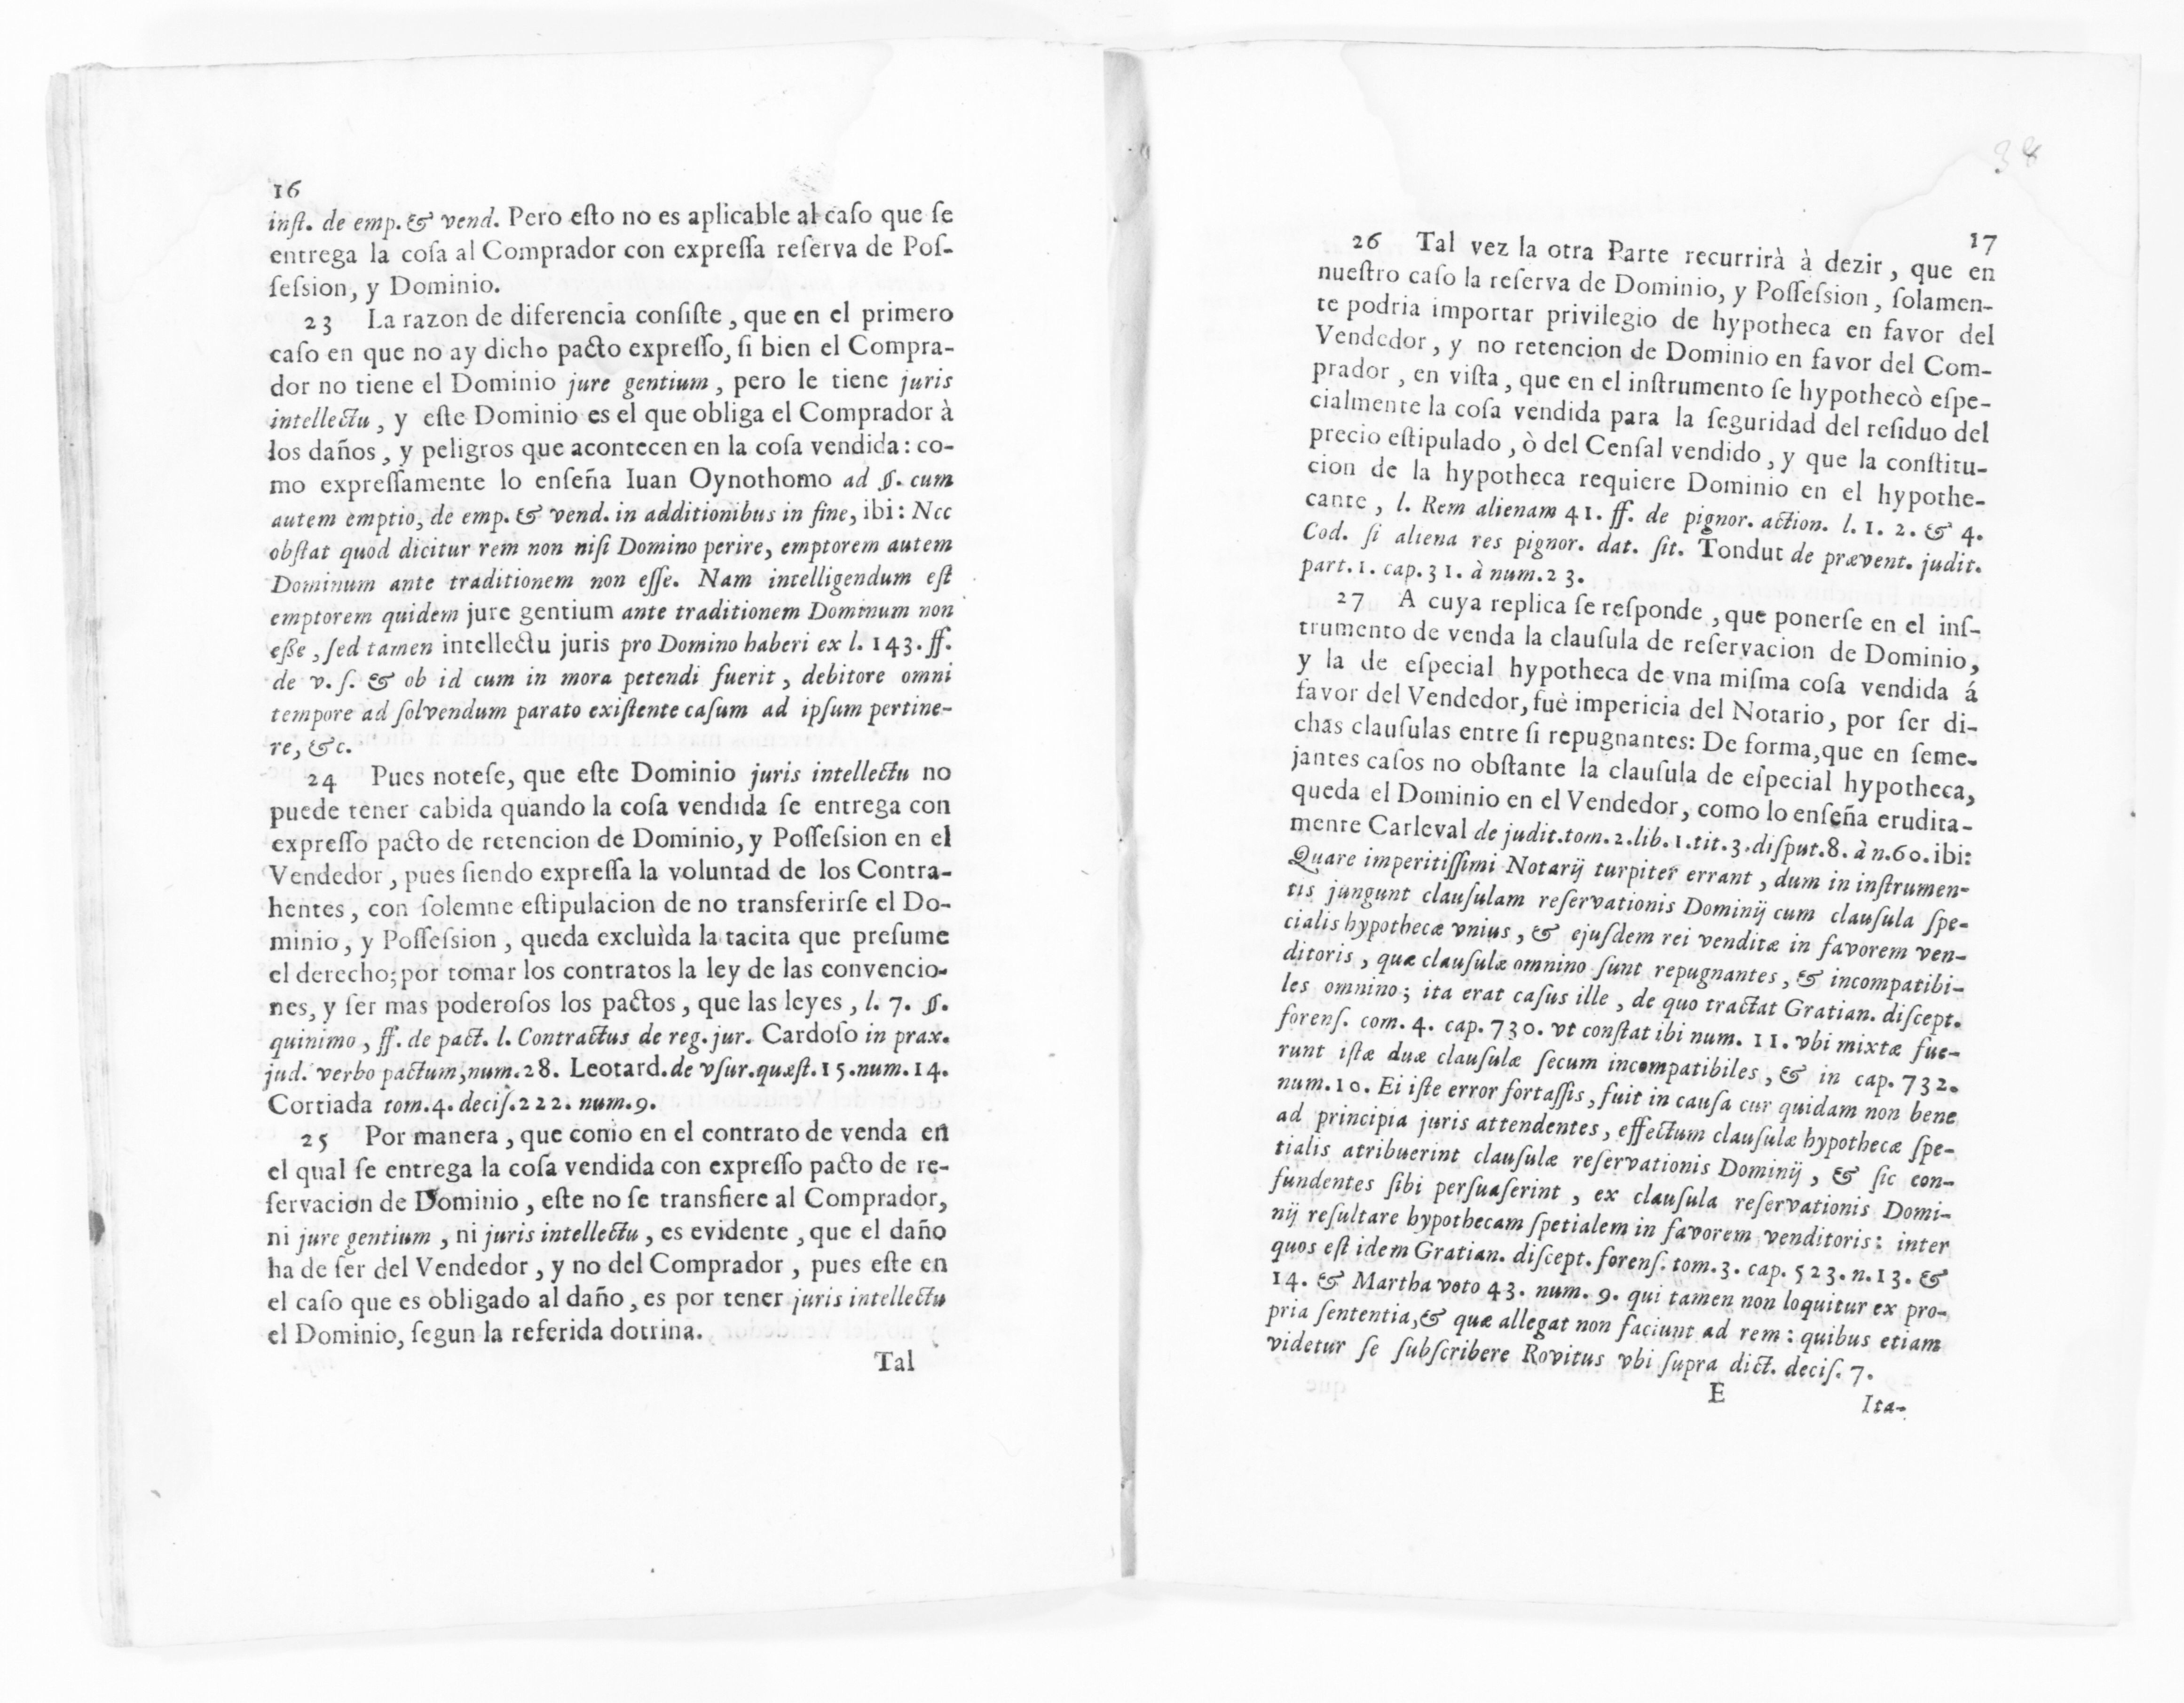 16
inſt. de emp. & vend. Pero eſto no es aplicable al caſo que ſe
entrega la coſa al Comprador con expreſſa reſerva de Poſ-
ſeſsion, y Dominio.
23 La razon de diferencia conſiſte, que en el primero
caſo en que no ay dicho pacto expreſſo, ſi bien el Compra-
dor no tiene el Dominio jure gentium, pero le tiene juris
intellectu, y eſte Dominio es el que obliga el Comprador à
los daños, y peligros que acontecen en la coſa vendida: co-
mo expreſſamente lo enſeña Iuan Oynothomo ad §. cum
autem emptio, de emp. & vend. in additionibus in fine, ibi: Nec
obſtat quod dicitur rem non niſi Domino perire, emptorem autem
Dominum ante traditionem non eſſe. Nam intelligendum eſt
emptorem quidem jure gentium ante traditionem Dominum non
eße, ſed tamen intellectu juris pro Domino haberi ex l. 143. ff.
de v. ſ. & ob id cum in mora petendi fuerit, debitore omni
tempore ad ſolvendum parato exiſtente caſum ad ipſum pertine-
re, &c.
24 Pues noteſe, que eſte Dominio juris intellectu no
puede tener cabida quando la coſa vendida ſe entrega con
expreſſo pacto de retencion de Dominio, y Poſſeſsion en el
Vendedor, pues ſiendo expreſſa la voluntad de los Contra-
hentes, con ſolemne eſtipulacion de no transferirſe el Do-
minio, y Poſſeſsion, queda excluìda la tacita que preſume
el derecho; por tomar los contratos la ley de las convencio-
nes, y ſer mas poderoſos los pactos, que las leyes, l. 7. §.
quinimo, ff. de pact. l. Contractus de reg. jur. Cardoſo in prax.
jud. verbo pactum, num. 28. Leotard. de vſur. quæſt. 15. num. 14.
Cortiada tom. 4. deciſ. 222. num. 9.
25 Por manera, que como en el contrato de venda en
el qual ſe entrega la coſa vendida con expreſſo pacto de re-
ſervacion de Dominio, eſte no ſe transfiere al Comprador,
ni jure gentium, ni juris intellectu, es evidente, que el daño
ha de ſer del Vendedor, y no del Comprador, pues eſte en
el caſo que es obligado al daño, es por tener juris intellectu
el Dominio, ſegun la referida dotrina.
Tal
38
17
26 Tal vez la otra Parte recurrirà à dezir, que en
nueſtro caſo la reſerva de Dominio, y Poſſeſsion, ſolamen-
te podria importar privilegio de hypotheca en favor del
Vendedor, y no retencion de Dominio en favor del Com-
prador, en viſta, que en el inſtrumento ſe hypothecò eſpe-
cialmente la coſa vendida para la ſeguridad del reſiduo del
precio eſtipulado, ò del Cenſal vendido, y que la conſtitu-
cion de la hypotheca requiere Dominio en el hypothe-
cante, l. Rem alienam 41. ff. de pignor. action. l. 1. 2. & 4.
Cod. ſi aliena res pignor. dat. ſit. Tondut de prævent. judit.
part. 1. cap. 31. à num. 23.
27 A cuya replica ſe reſponde, que ponerſe en el inſ-
trumento de venda la clauſula de reſervacion de Dominio,
y la de eſpecial hypotheca de vna miſma coſa vendida á
favor del Vendedor, fuè impericia del Notario, por ſer di-
chas clauſulas entre ſi repugnantes: De forma, que en ſeme-
jantes caſos no obſtante la clauſula de eſpecial hypotheca,
queda el Dominio en el Vendedor, como lo enſeña erudita-
mente Carleval de judit. tom. 2. lib. 1. tit. 3. diſput. 8. à n. 60. ibi:
Quare imperitiſſimi Notarij turpiter errant, dum in inſtrumen-
tis jungunt clauſulam reſervationis Dominij cum clauſula ſpe-
cialis hypothecæ vnius, & ejuſdem rei venditæ in favorem ven-
ditoris, quæ clauſulæ omnino ſunt repugnantes, & incompatibi-
les omnino; ita erat caſus ille, de quo tractat Gratian. diſcept.
forenſ. com. 4. cap. 730. vt conſtat ibi num. 11. vbi mixtæ fue-
runt iſtæ duæ clauſulæ ſecum incompatibiles, & in cap. 732.
num. 10. Ei iſte error fortaſſis, fuit in cauſa cur quidam non bene
ad principia juris attendentes, effectum clauſulæ hypothecæ ſpe-
tialis atribuerint clauſulæ reſervationis Dominij, & ſic con-
fundentes ſibi perſuaſerint, ex clauſula reſervationis Domi-
nij reſultare hypothecam ſpetialem in favorem venditoris: inter
quos eſt idem Gratian. diſcept. forenſ. tom. 3. cap. 523. n. 13. &
14. & Martha voto 43. num. 9. qui tamen non loquitur ex pro-
pria ſententia, & quæ allegat non faciunt ad rem: quibus etiam
videtur ſe ſubſcribere Rovitus vbi ſupra dict. deciſ. 7.
E
Ita-